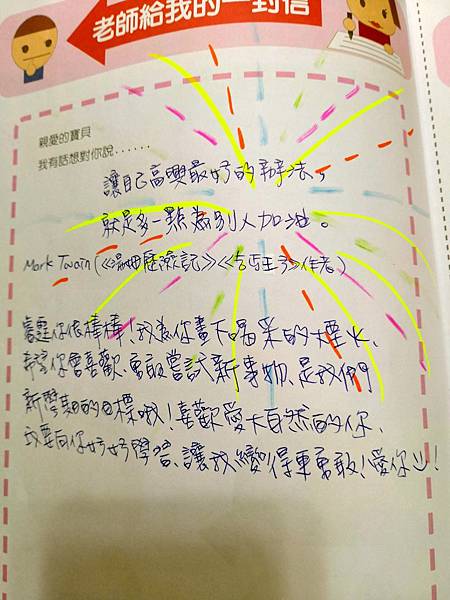 老師給我的一封信
親愛的寶貝
我有話想對你說......
讓自己高興最好的辦法，
就是多一點為別人加油。
Mark Twain（《湯姆歷險記》《乞丐王子》作者）
你很棒棒！我為你畫下喝采的煙火、
希望你會喜歡、勇敢嘗試新事物、是我們
新學期的目標哦！喜歡愛大自然的你、
我要向你好好學習、讓我變得更勇敢！愛你！